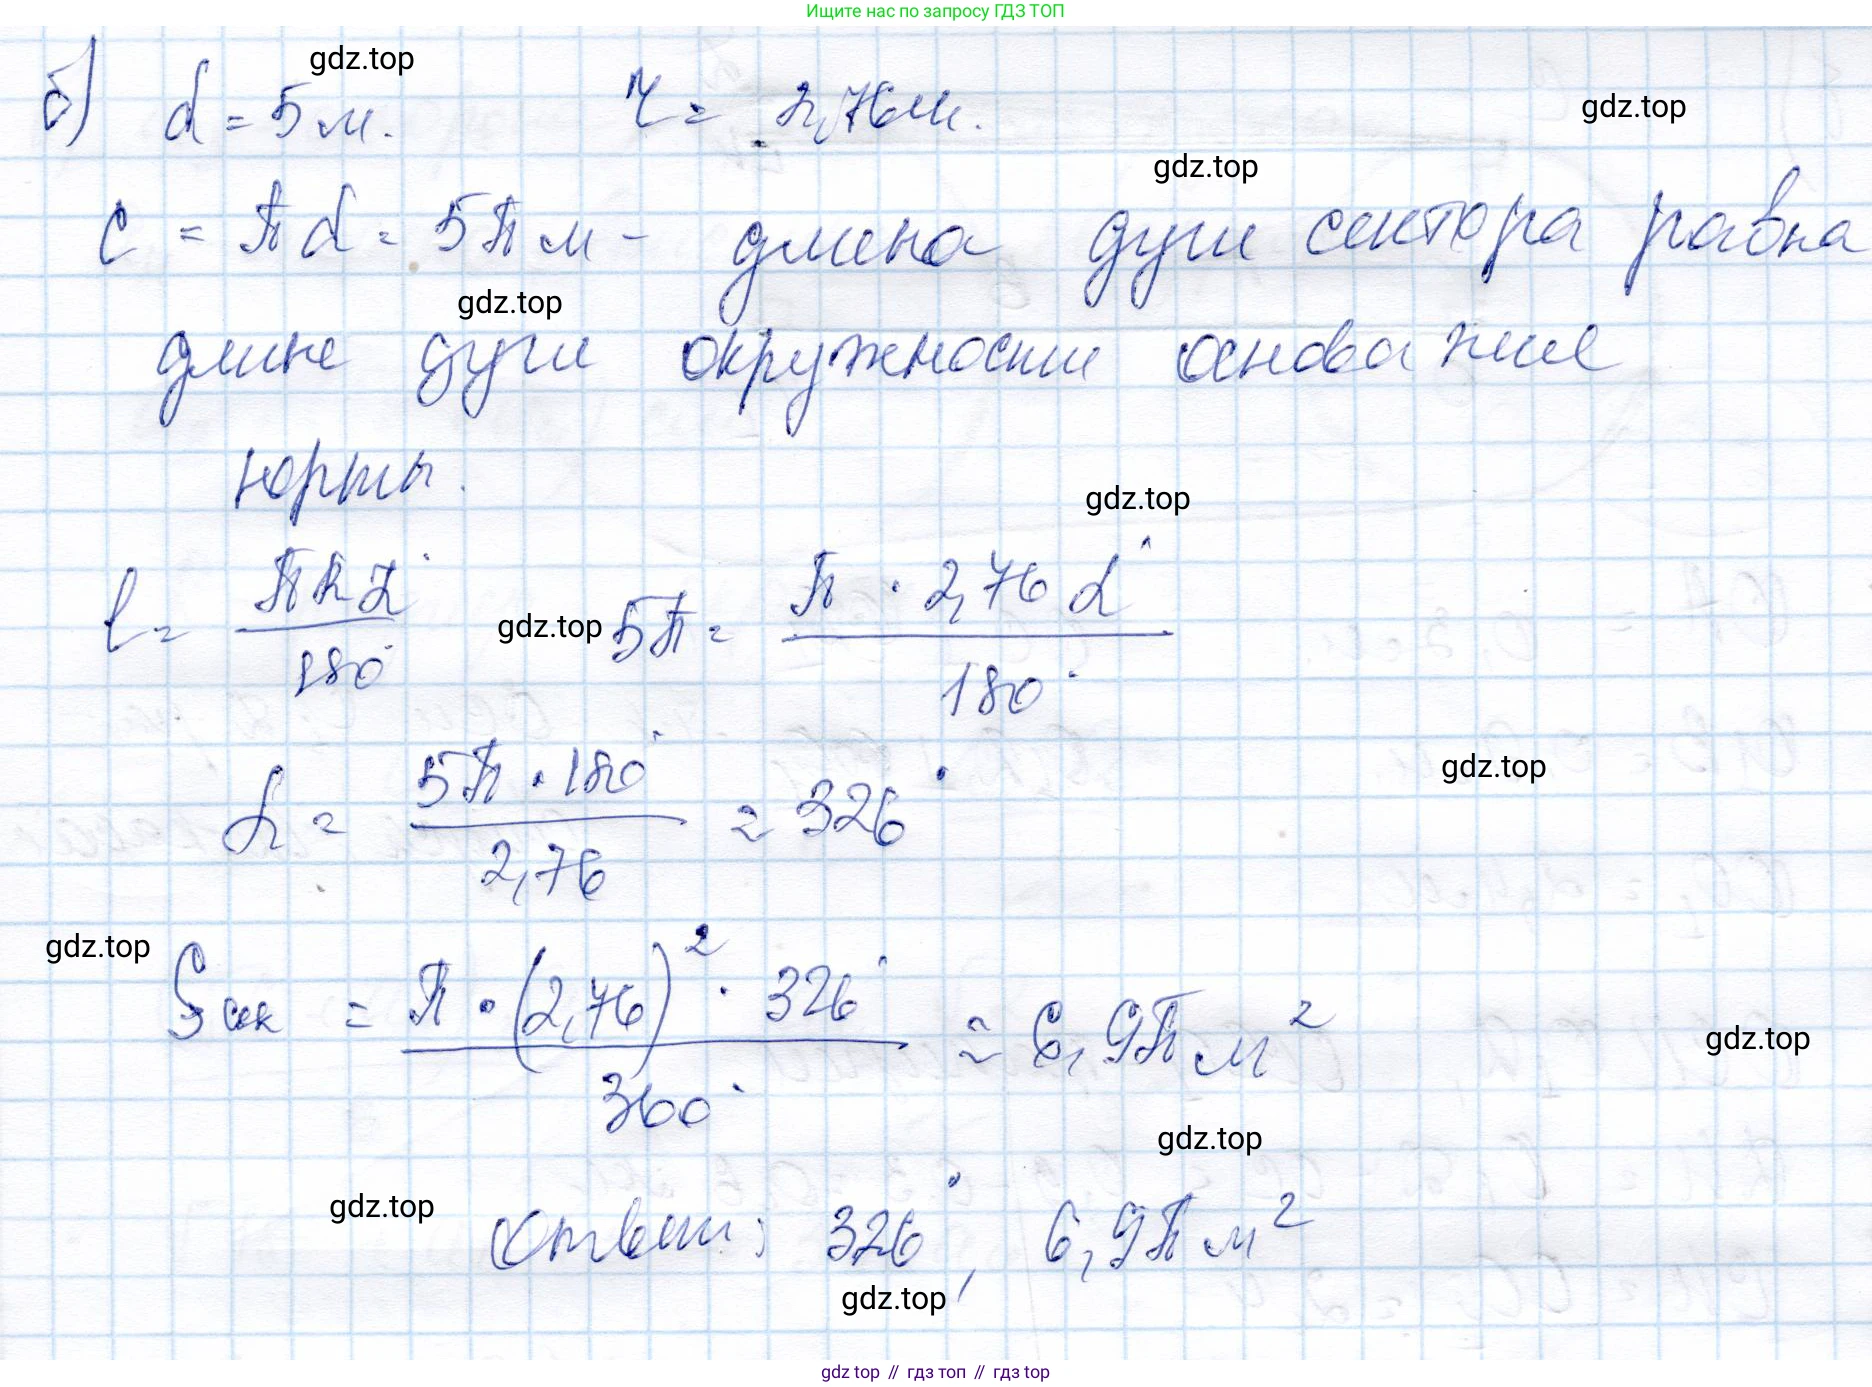 Ищите нас по запросу ГДЗ ТОП
gdz.top
б) d = 5 м. r = 2,76 м.
gdz.top
gdz.top
c = πd = 5π м - длина дуги сектора равна
gdz.top
длине дуги окружности основания
юрты.
gdz.top
l = πRα° / 180° gdz.top 5π = π · 2,76 α° / 180°
α = 5π · 180° / 2,76 = 326°
gdz.top
gdz.top
Sсек = π · (2,76)² · 326° / 360° ≈ 6,9π м²
gdz.top
gdz.top
gdz.top
Ответ: 326°, 6,9π м²
gdz.top
gdz top // гдз топ // гдз top